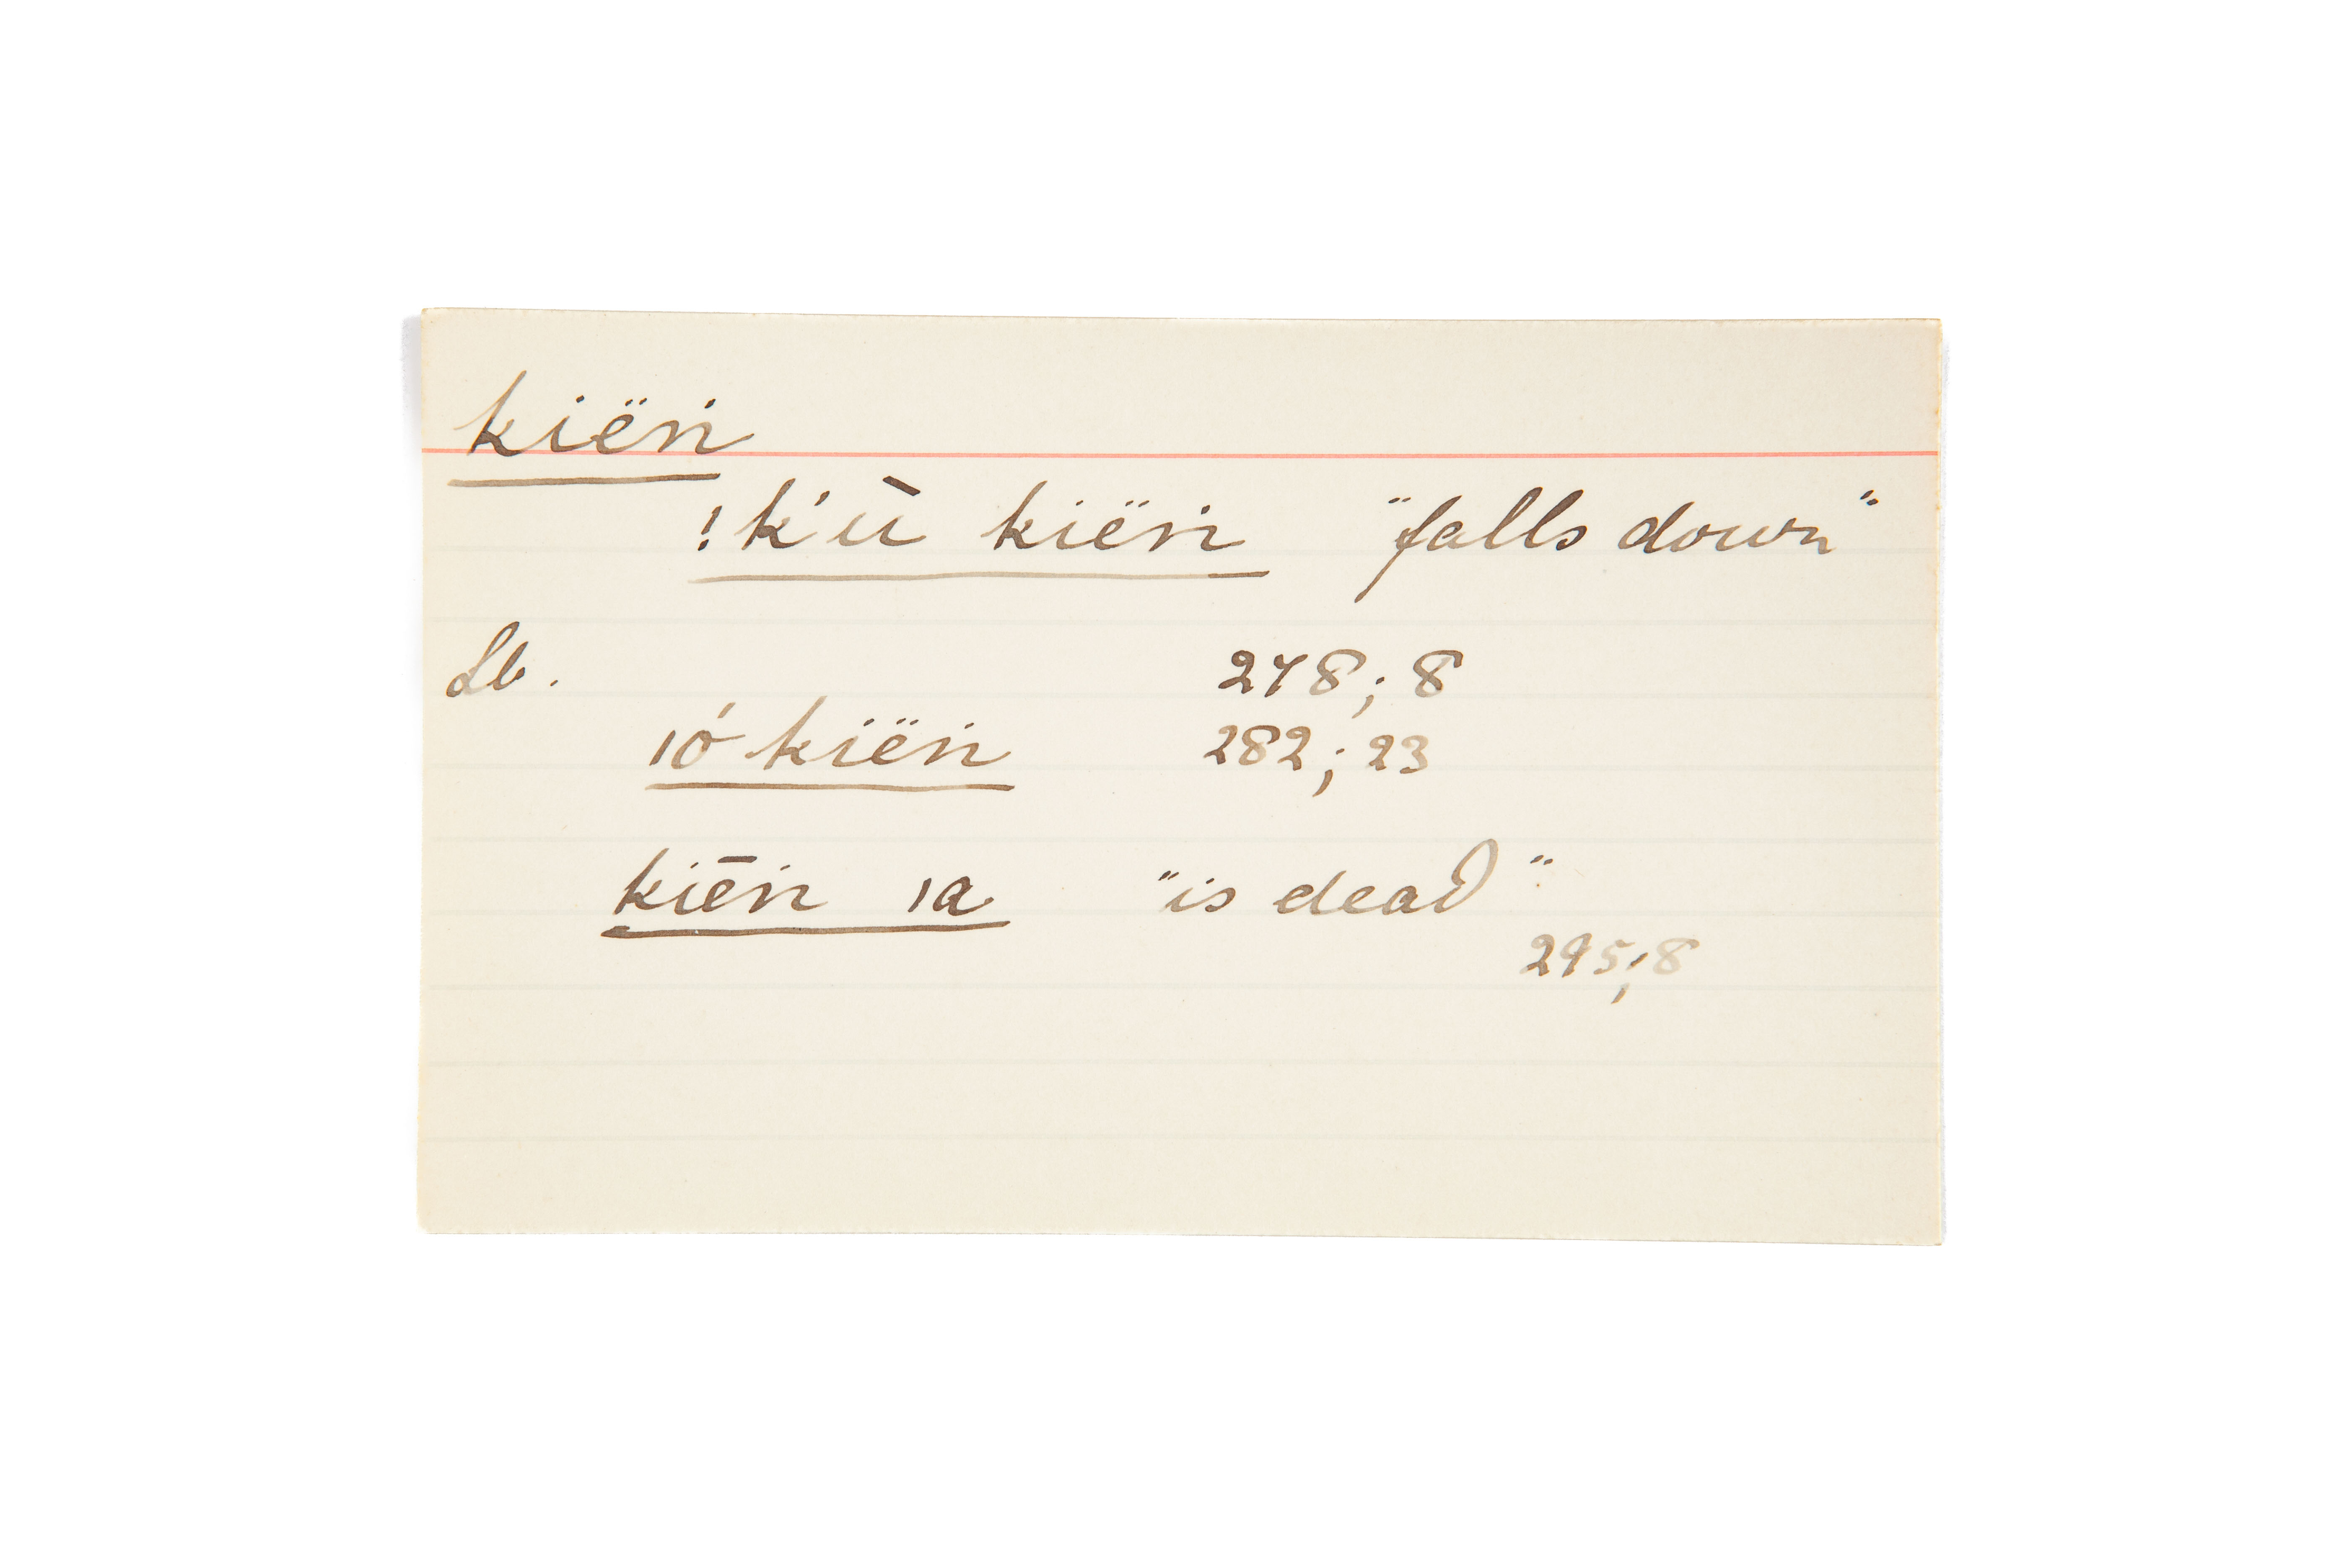 kiëṅ
!k'ū kiëṅ "falls down"
Lb. 278; 8
ıó kiëṅ 282; 23
kiēṅ ıa "is dead"
295; 8